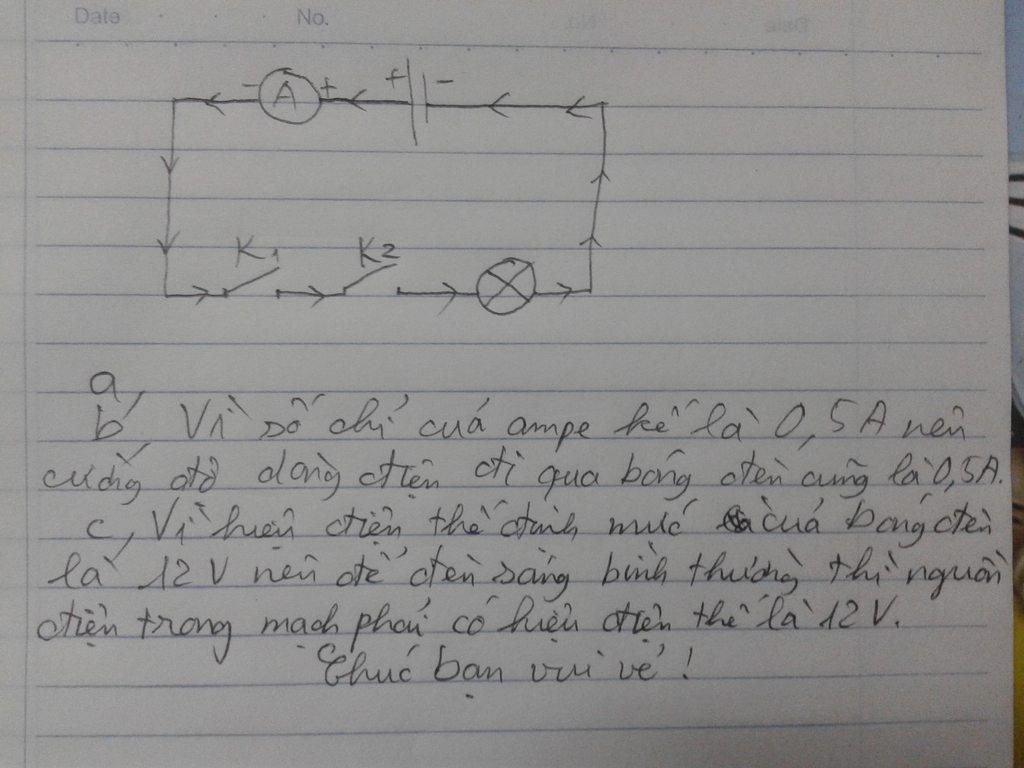 Date No.
- A + + -
K1 K2
a,
b, Vì số chỉ của ampe kế là 0,5A nên
cường độ dòng điện đi qua bóng đèn cũng là 0,5A.
c, Vì hiệu điện thế định mức của bóng đèn
là 12V nên để đèn sáng bình thường thì nguồn
điện trong mạch phải có hiệu điện thế là 12V.
Chúc bạn vui vẻ!